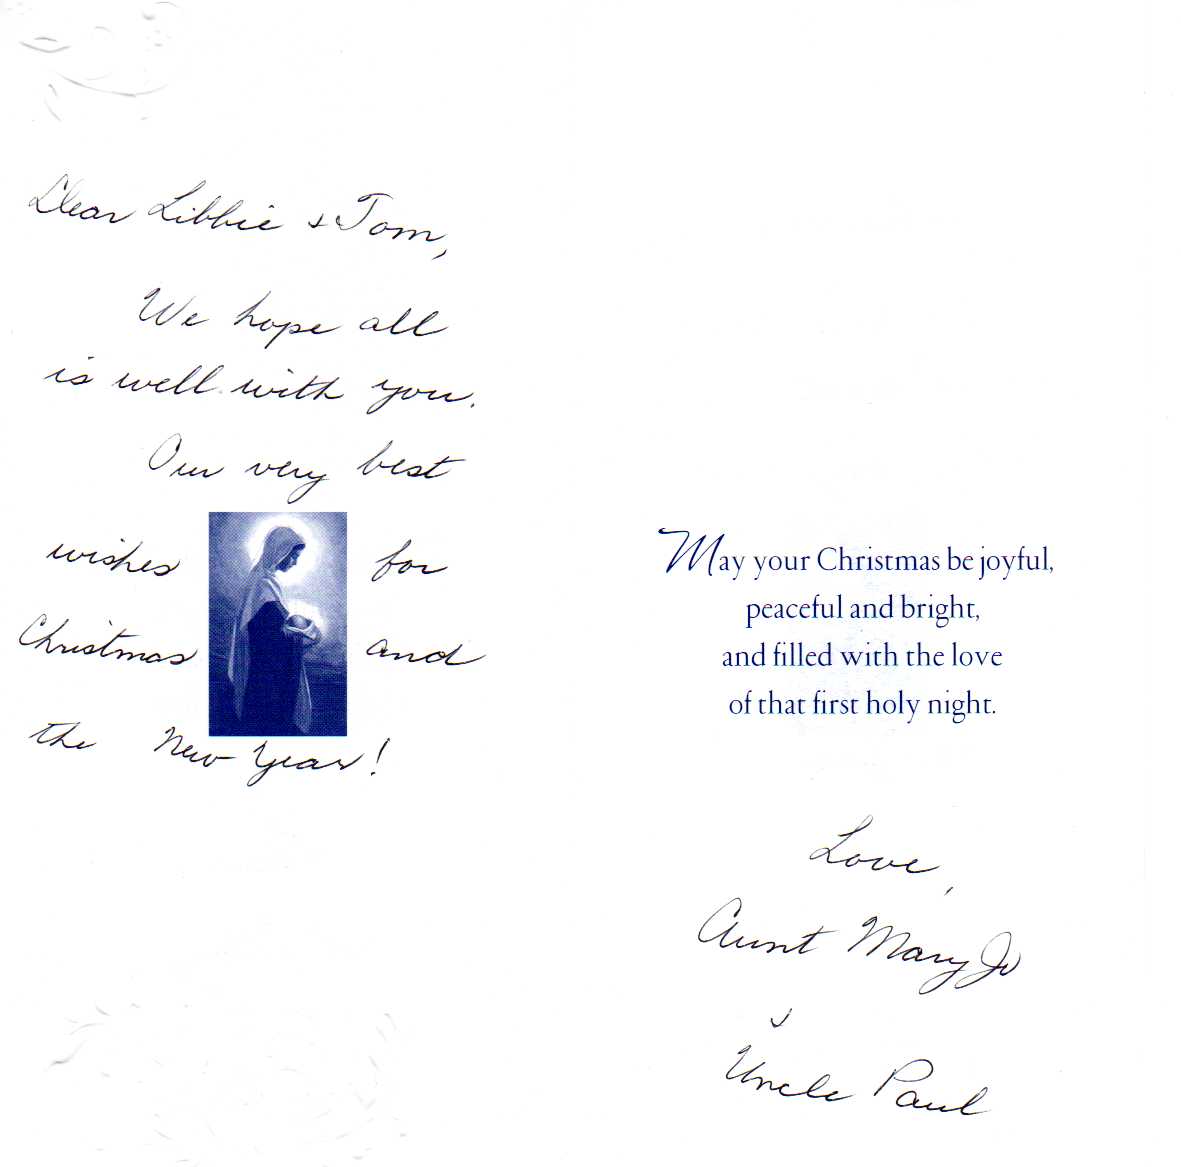 Dear Libbie & Tom,
We hope all
is well with you.
Our very best
wishes for
Christmas and
the New Year!
May your Christmas be joyful,
peaceful and bright,
and filled with the love
of that first holy night.
Love,
Aunt Mary Jo
&
Uncle Paul